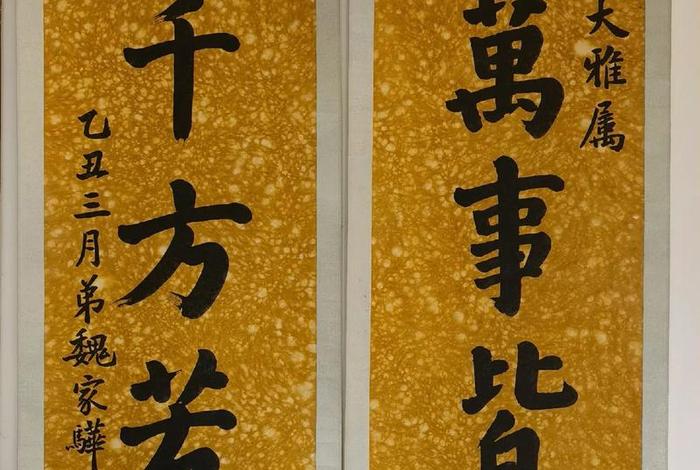 大雅属
萬事皆
千方苦
乙丑三月弟魏家驊